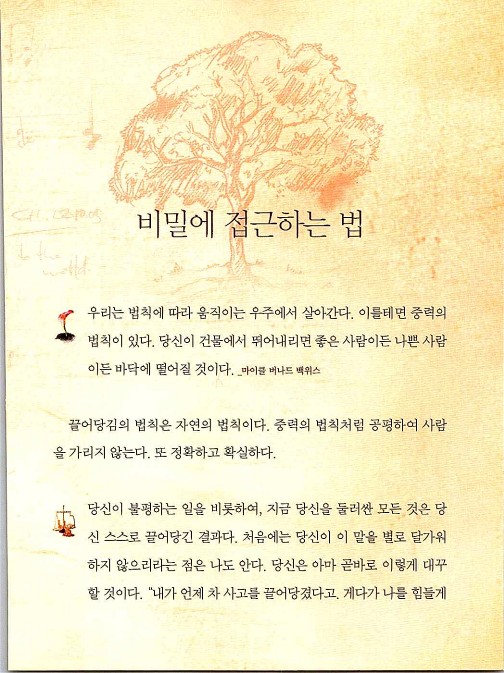 비밀에 접근하는 법
우리는 법칙에 따라 움직이는 우주에서 살아간다. 이를테면 중력의
법칙이 있다. 당신이 건물에서 뛰어내리면 좋은 사람이든 나쁜 사람
이든 바닥에 떨어질 것이다. _마이클 버나드 백위스
끌어당김의 법칙은 자연의 법칙이다. 중력의 법칙처럼 공평하여 사람
을 가리지 않는다. 또 정확하고 확실하다.
당신이 불평하는 일을 비롯하여, 지금 당신을 둘러싼 모든 것은 당
신 스스로 끌어당긴 결과다. 처음에는 당신이 이 말을 별로 달가워
하지 않으리라는 점은 나도 안다. 당신은 아마 곧바로 이렇게 대꾸
할 것이다. "내가 언제 차 사고를 끌어당겼다고. 게다가 나를 힘들게